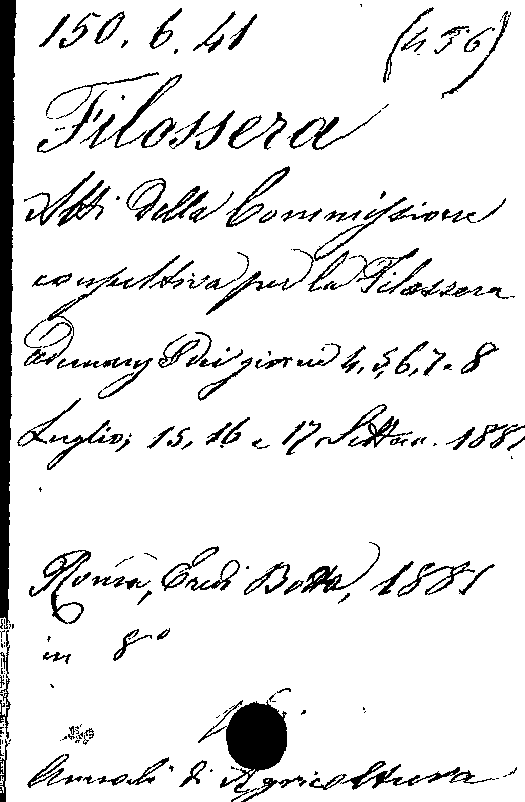 150. 6. 41 (456)
Filossera
Atti della Commissione
consultiva per la Filossera
Adunanze dei giorni 4, 5, 6, 7 e 8
Luglio; 15, 16 e 17 Settem. 1881
Roma, Eredi Botta, 1881
in 8°
Annali di Agricoltura